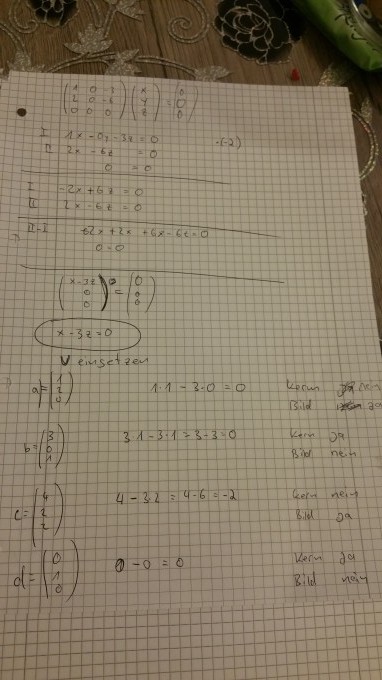 (1 0 -3) (x) (0)
(2 0 -6) (y) = (0)
(0 0 0) (z) (0)
I 1x - 0y - 3z = 0 ·(-2)
II 2x - 6z = 0
0 = 0
I -2x + 6z = 0
II 2x - 6z = 0
II-I -2x + 2x + 6x - 6z = 0
0 = 0
(x-3z) (0)
(0) = (0)
(0) (0)
x - 3z = 0
V einsetzen
a = (1 2 0) 1·1 - 3·0 = 0 Kern nein
Bild ja
b = (3 0 1) 3·1 - 3·1 = 3-3 = 0 Kern ja
Bild nein
c = (4 2 2) 4 - 3·2 = 4-6 = -2 Kern nein
Bild ja
d = (0 1 0) 0 - 0 = 0 Kern ja
Bild nein